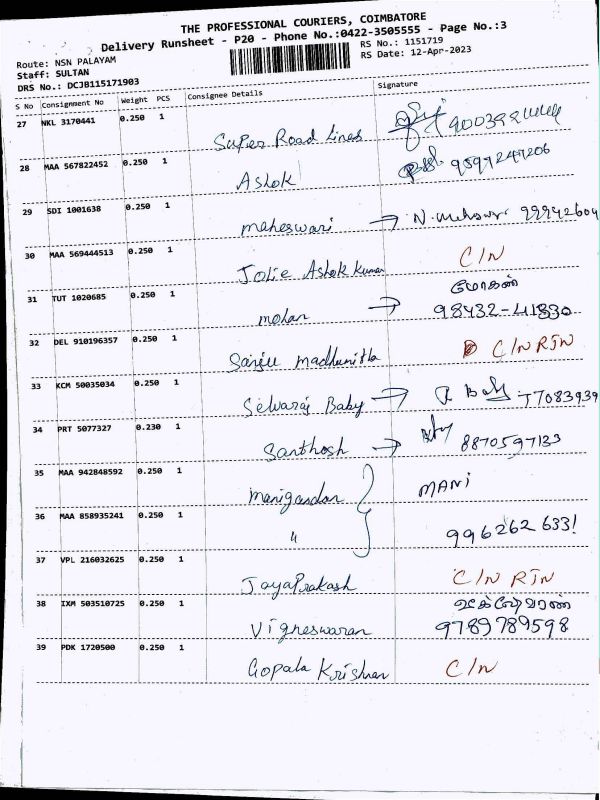 THE PROFESSIONAL COURIERS, COIMBATORE
Delivery Runsheet - P20 - Phone No.:0422-3505555 - Page No.:3
Route: NSN PALAYAM
RS No.: 1151719
Staff: SULTAN
RS Date: 12-Apr-2023
DRS No.: DCJB115171903
S No Consignment No Weight PCS Consignee Details Signature
27 NKL 3170441 0.250 1
Super Road Lines
28 MAA 567822452 0.250 1
Ashok
29 SDI 1001638 0.250 1
maheswari →
30 MAA 569444513 0.250 1 C/N
Jolie Ashok Kumar
31 TUT 1020685 0.250 1 மோகன்
mohan → 98432-41830
32 DEL 910196357 0.250 1
Sanju C/N RTN
33 KCM 50035034 0.250 1
Selvaraj Baby →
34 PRT 5077327 0.230 1
Santhosh → 8870597133
35 MAA 942848592 0.250 1 MANI
Manigandan
36 MAA 858935241 0.250 1
" 9962626331
37 VPL 216032625 0.250 1 C/N RTN
JayaPrakash
38 IXM 503510725 0.250 1
Vigneswaran 9789789598
39 PDK 1720500 0.250 1 C/N
Gopala Krishnan